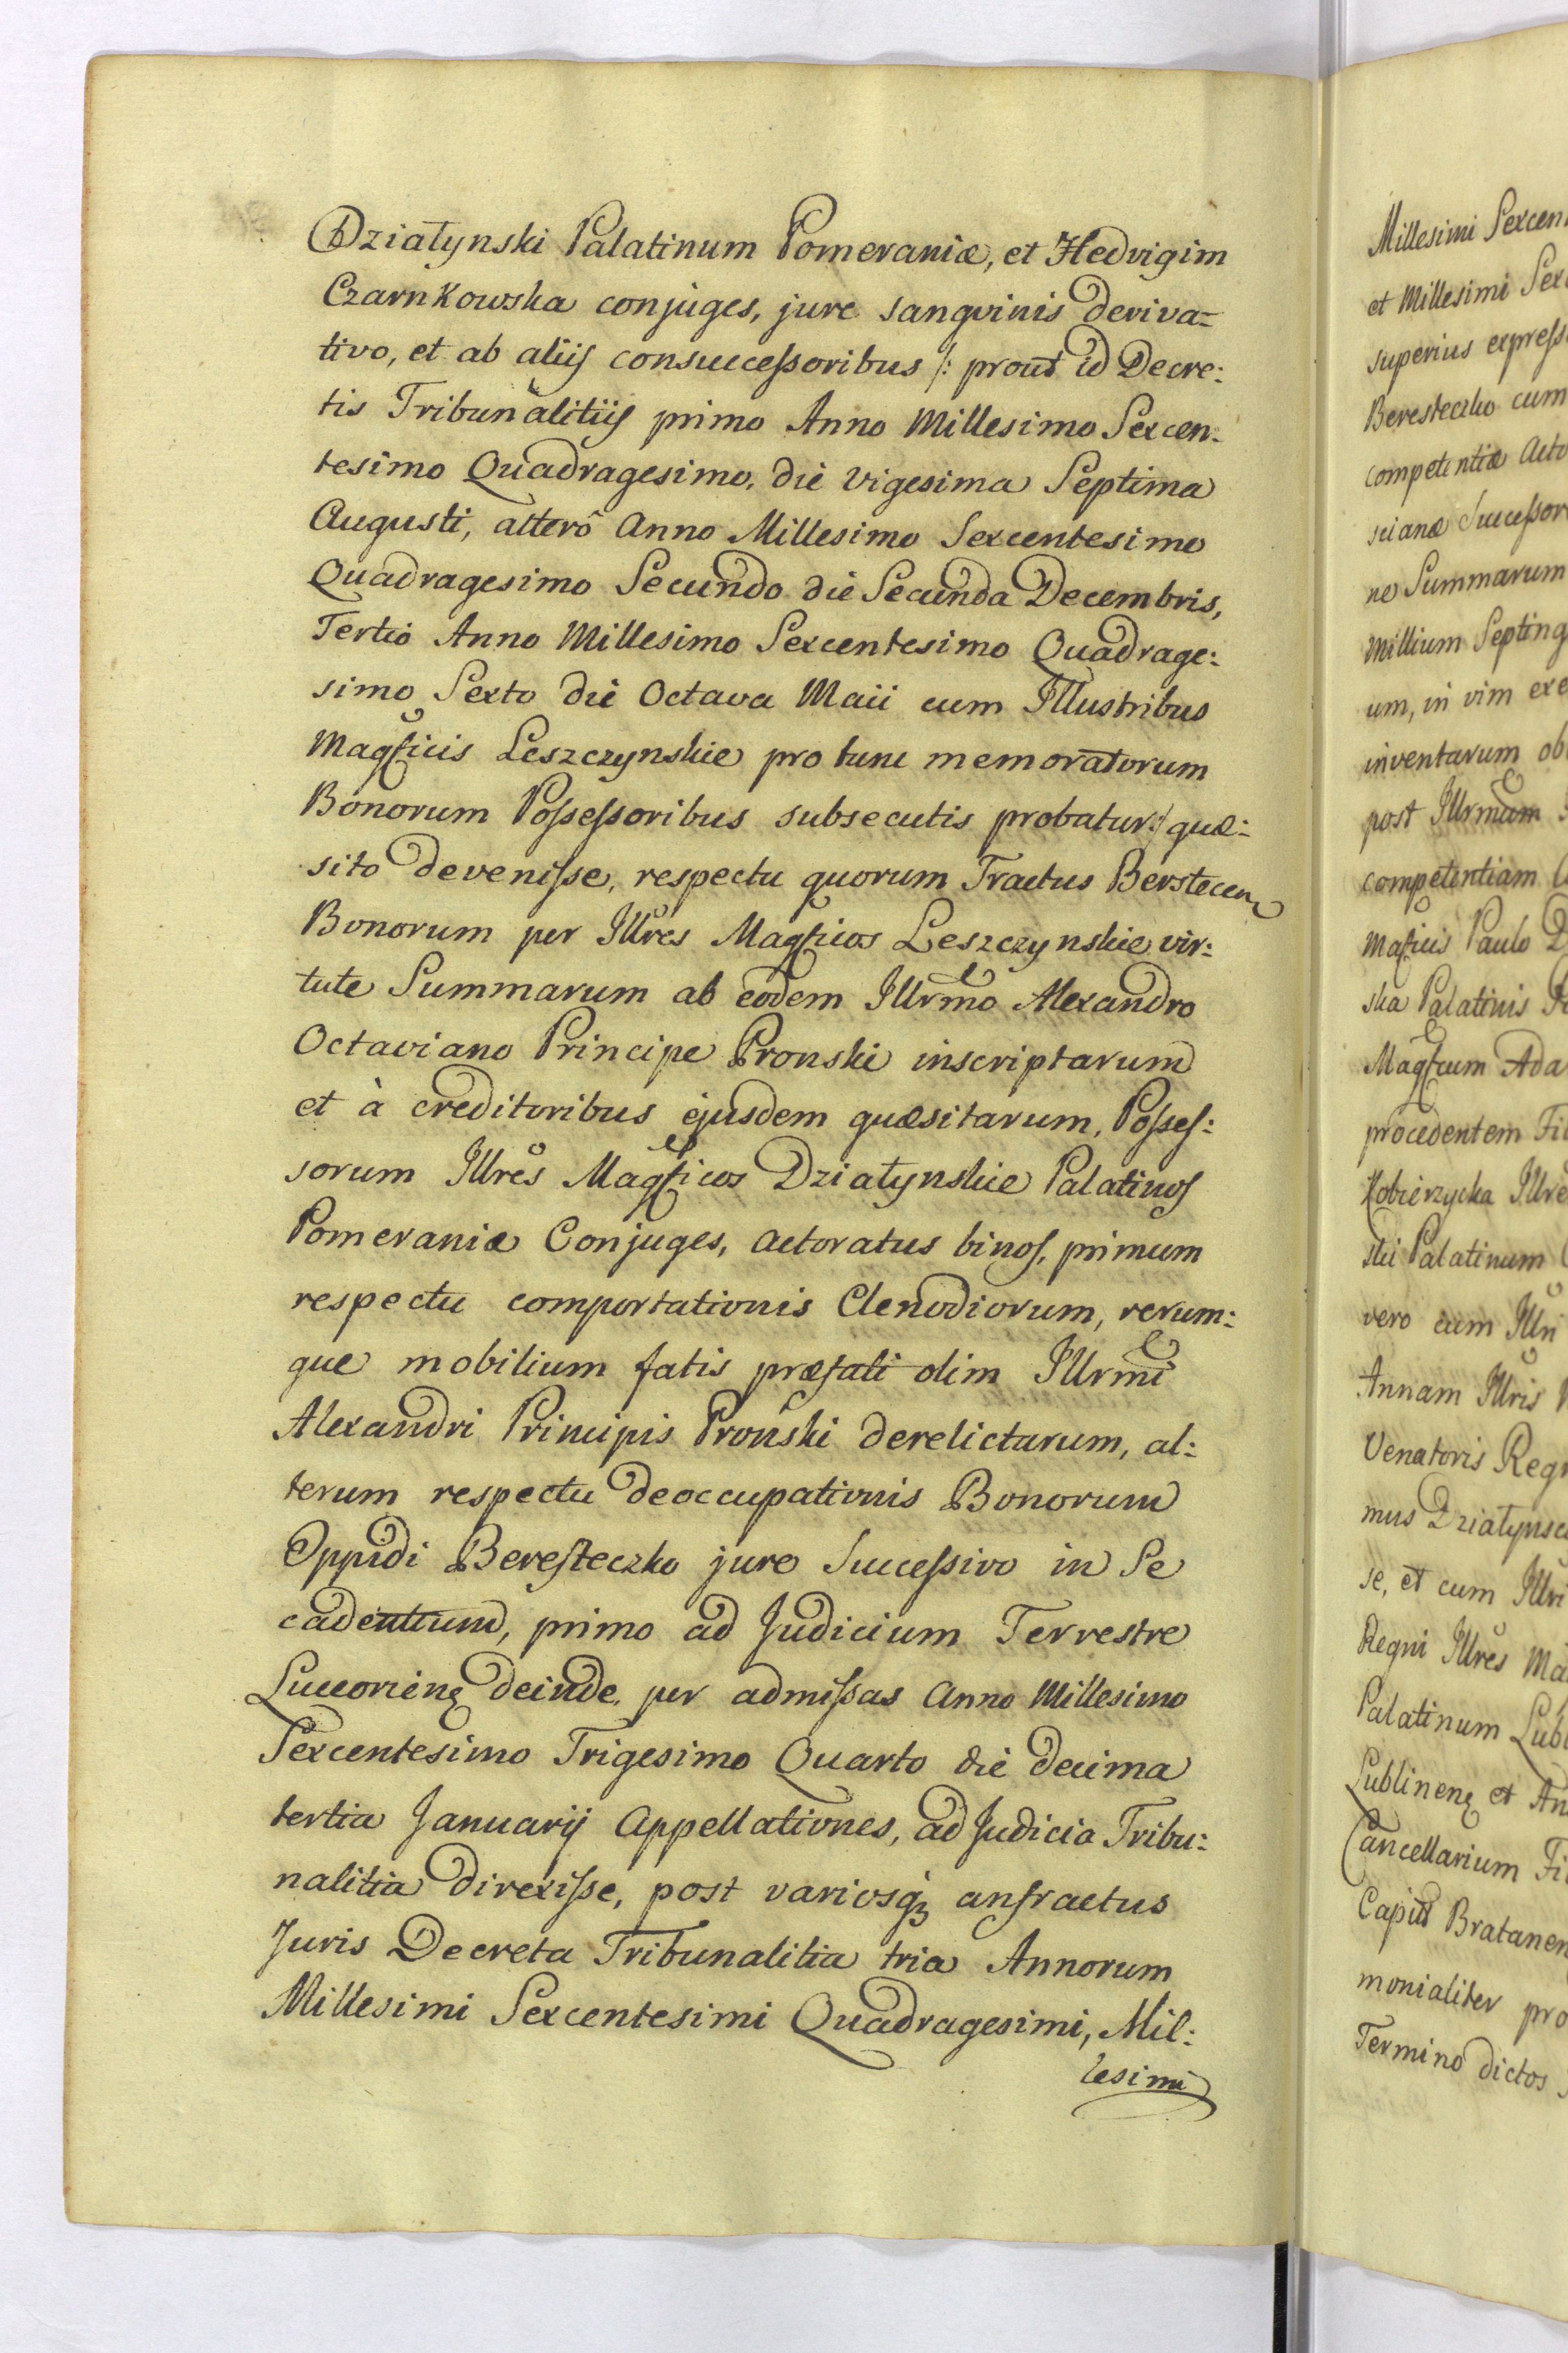 Działynski Palatinum Pomeraniæ, et Hedvigim
Czarnkowska conjuges, jure sangvinis deriva=
tivo, et ab aliis consuccessoribus /: prout id Decre:
tis Tribunalitiis primo Anno Millesimo Sexcen:
tesimo Quadragesimo, die vigesima Septima
Augusti, alterô Anno Millesimo Sexcentesimo
Quadragesimo Secundo die Secunda Decembris,
Tertio Anno Millesimo Sexcentesimo Quadrage:
simo Sexto die Octava Maii cum Illustribus
Magficis Leszczynskie pro tunc memoratorum
Bonorum Possessoribus subsecutis probatur :/ quæ:
sito devenisse, respectu quorum Tractus Berstecen
Bonorum per Illres Magficos Leszczynskie vir:
tute Summarum ab eodem Illrmo Alexandro
Octaviano Principe Pronski inscriptarum
et à creditoribus ejusdem quæsitarum, Posses:
sorum Illres Magficos Działynskie Palatinos
Pomeraniæ Conjuges, actoratus binos, primum
respectu comportationis Clenodiorum, rerum:
que mobilium fatis præfati olim Illrmi
Alexandri Principis Pronski derelictarum, al:
terum respectu deoccupationis Bonorum
Oppidi Beresteczko jure Successivo in Se
cadentium, primo ad Judicium Terrestre
Lucoriens deinde per admissas Anno Millesimo
Sexcentesimo Trigesimo Quarto die decima
tertia Januarij Appellationes, ad Judicia Tribu:
nalitia direxisse, post variosq3 anfractus
Juris Decreta Tribunalitia tria Annorum
Millesimi Sexcentesimi Quadragesimi, Mil:
lesimi
Millesimi Sexcen
et Millesimi Sex
superius express
Beresteczko cum
competentiæ Acto
scianæ Successor
ne Summarum
Millium Septing
um, in vim exe
inventarum ob
post Illrmum
competentiam
Maficis Paulo D
ska Palatinis
Magficum Ada
procedentem Fi
Kobierzycka Illre
ski Palatinum
vero cum Illri
Annam Illris
Venatoris Regn
mus Działynsc
se, et cum Illri
Regni Illres Ma
Palatinum Lubl
Lublinens et An
Cancellarium Fi
Caput Bratanen
monialiter pro
Termino dictos